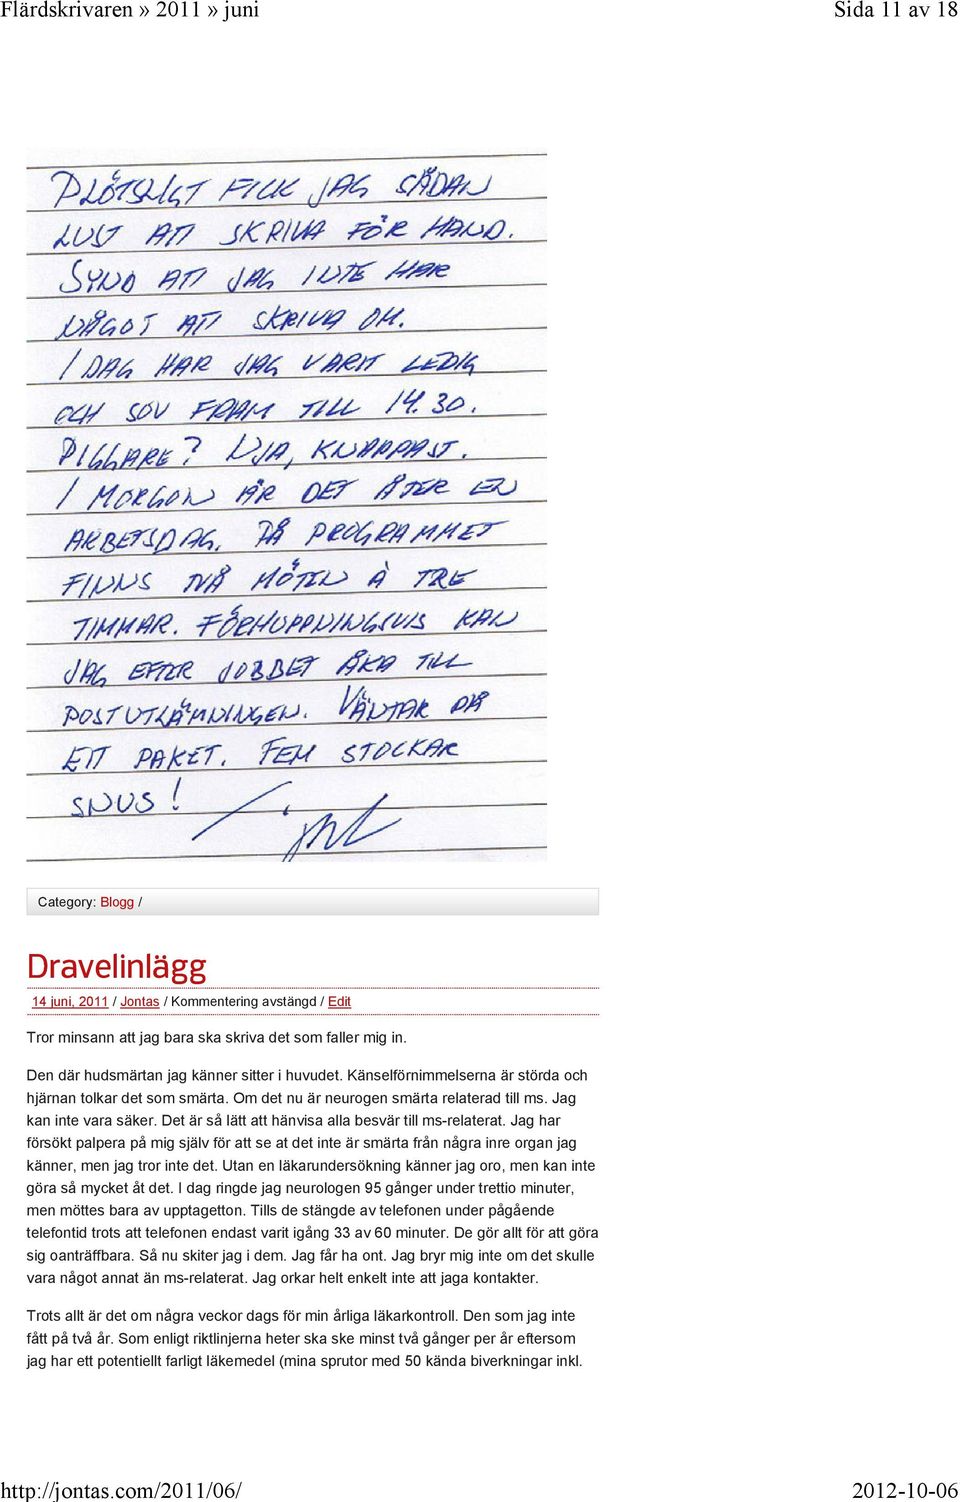 Flärdskrivaren » 2011 » juni Sida 11 av 18
PLÖTSLIGT FICK JAG SÅDAN
LUST ATT SKRIVA FÖR HAND.
SYND ATT JAG INTE HAR
NÅGOT ATT SKRIVA OM.
I DAG HAR JAG VARIT LEDIG
OCH SOV FRAM TILL 14.30.
PIGGARE? NJA, KNAPPAST.
I MORGON ÄR DET ÅTER EN
ARBETSDAG. PÅ PROGRAMMET
FINNS TVÅ MÖTEN À TRE
TIMMAR. FÖRHOPPNINGSVIS KAN
JAG EFTER JOBBET ÅKA TILL
POSTUTLÄMNINGEN. VÄNTAR PÅ
ETT PAKET. FEM STOCKAR
SNUS!
Category: Blogg /
Dravelinlägg
14 juni, 2011 / Jontas / Kommentering avstängd / Edit
Tror minsann att jag bara ska skriva det som faller mig in.
Den där hudsmärtan jag känner sitter i huvudet. Känselförnimmelserna är störda och
hjärnan tolkar det som smärta. Om det nu är neurogen smärta relaterad till ms. Jag
kan inte vara säker. Det är så lätt att hänvisa alla besvär till ms-relaterat. Jag har
försökt palpera på mig själv för att se at det inte är smärta från några inre organ jag
känner, men jag tror inte det. Utan en läkarundersökning känner jag oro, men kan inte
göra så mycket åt det. I dag ringde jag neurologen 95 gånger under trettio minuter,
men möttes bara av upptagetton. Tills de stängde av telefonen under pågående
telefontid trots att telefonen endast varit igång 33 av 60 minuter. De gör allt för att göra
sig oanträffbara. Så nu skiter jag i dem. Jag får ha ont. Jag bryr mig inte om det skulle
vara något annat än ms-relaterat. Jag orkar helt enkelt inte att jaga kontakter.
Trots allt är det om några veckor dags för min årliga läkarkontroll. Den som jag inte
fått på två år. Som enligt riktlinjerna heter ska ske minst två gånger per år eftersom
jag har ett potentiellt farligt läkemedel (mina sprutor med 50 kända biverkningar inkl.
http://jontas.com/2011/06/ 2012-10-06